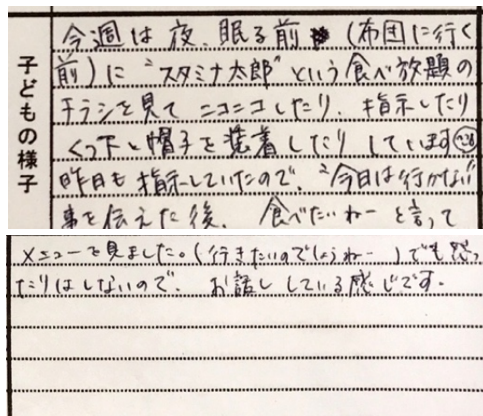 子どもの様子
今週は夜、眠る前 (布団に行く
前) に "スタミナ太郎" という食べ放題の
チラシを見て ニコニコしたり、指示したり
くつ下と帽子を装着したり しています
昨日も指示していたので、"今日は行かない"
事を伝えた後、食べたいねー と言って
メニューを見ました。(行きたいのでしょうねー) でも怒っ
たりはしないので、お話し している感じです。